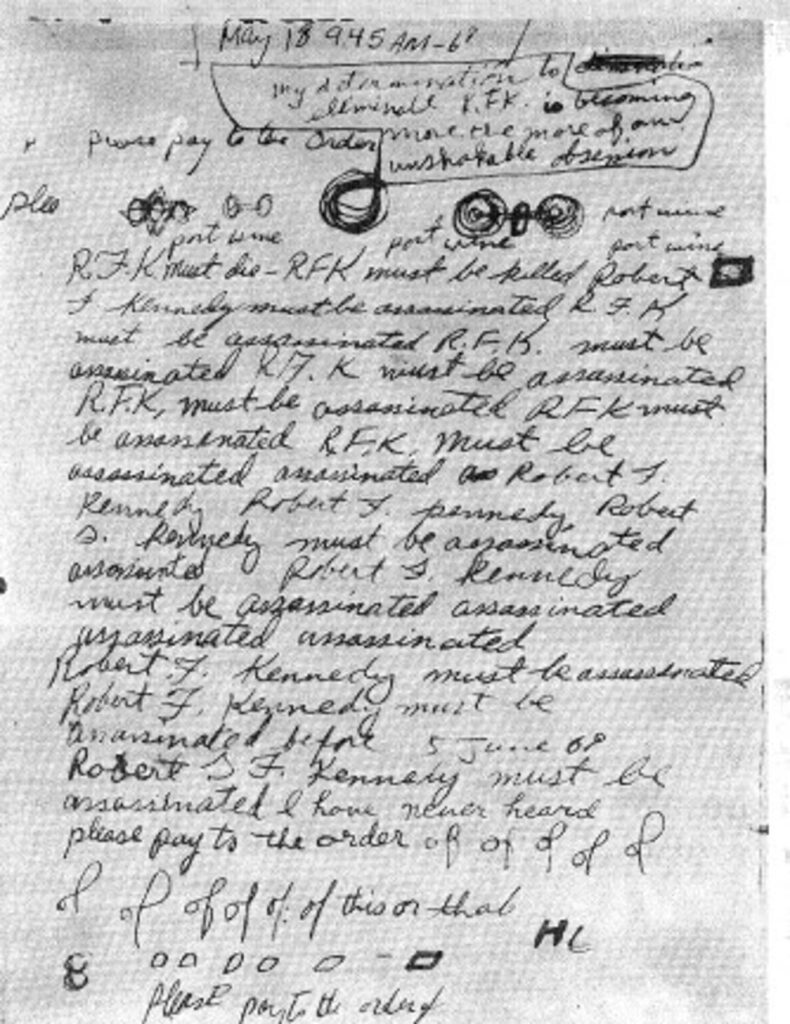 May 18 9.45 AM-68
my determination to
eliminate R.F.K. is becoming
please pay to the Order more the more of an
unshakable obsession
plea
port wine port wine port wine
port wine
R.F.K must die - RFK must be killed Robert
F Kennedy must be assassinated R. F. K
must be assassinated R.F.K. must be
assassinated R.F.K must be assassinated
R.F.K, must be assassinated R F K must
be assassinated R.F.K. Must be
assassinated assassinated Robert F.
Kennedy Robert F. Kennedy Robert
F. Kennedy must be assassinated
assassinated Robert F. Kennedy
must be assassinated assassinated
assassinated assassinated
Robert F. Kennedy must be assassinated
Robert F. Kennedy must be
assassinated before 5 June 68
Robert F. Kennedy must be
assassinated I have never heard
please pay to the order of of of of of
of of of of of. of this or that
8
please pay to the order of